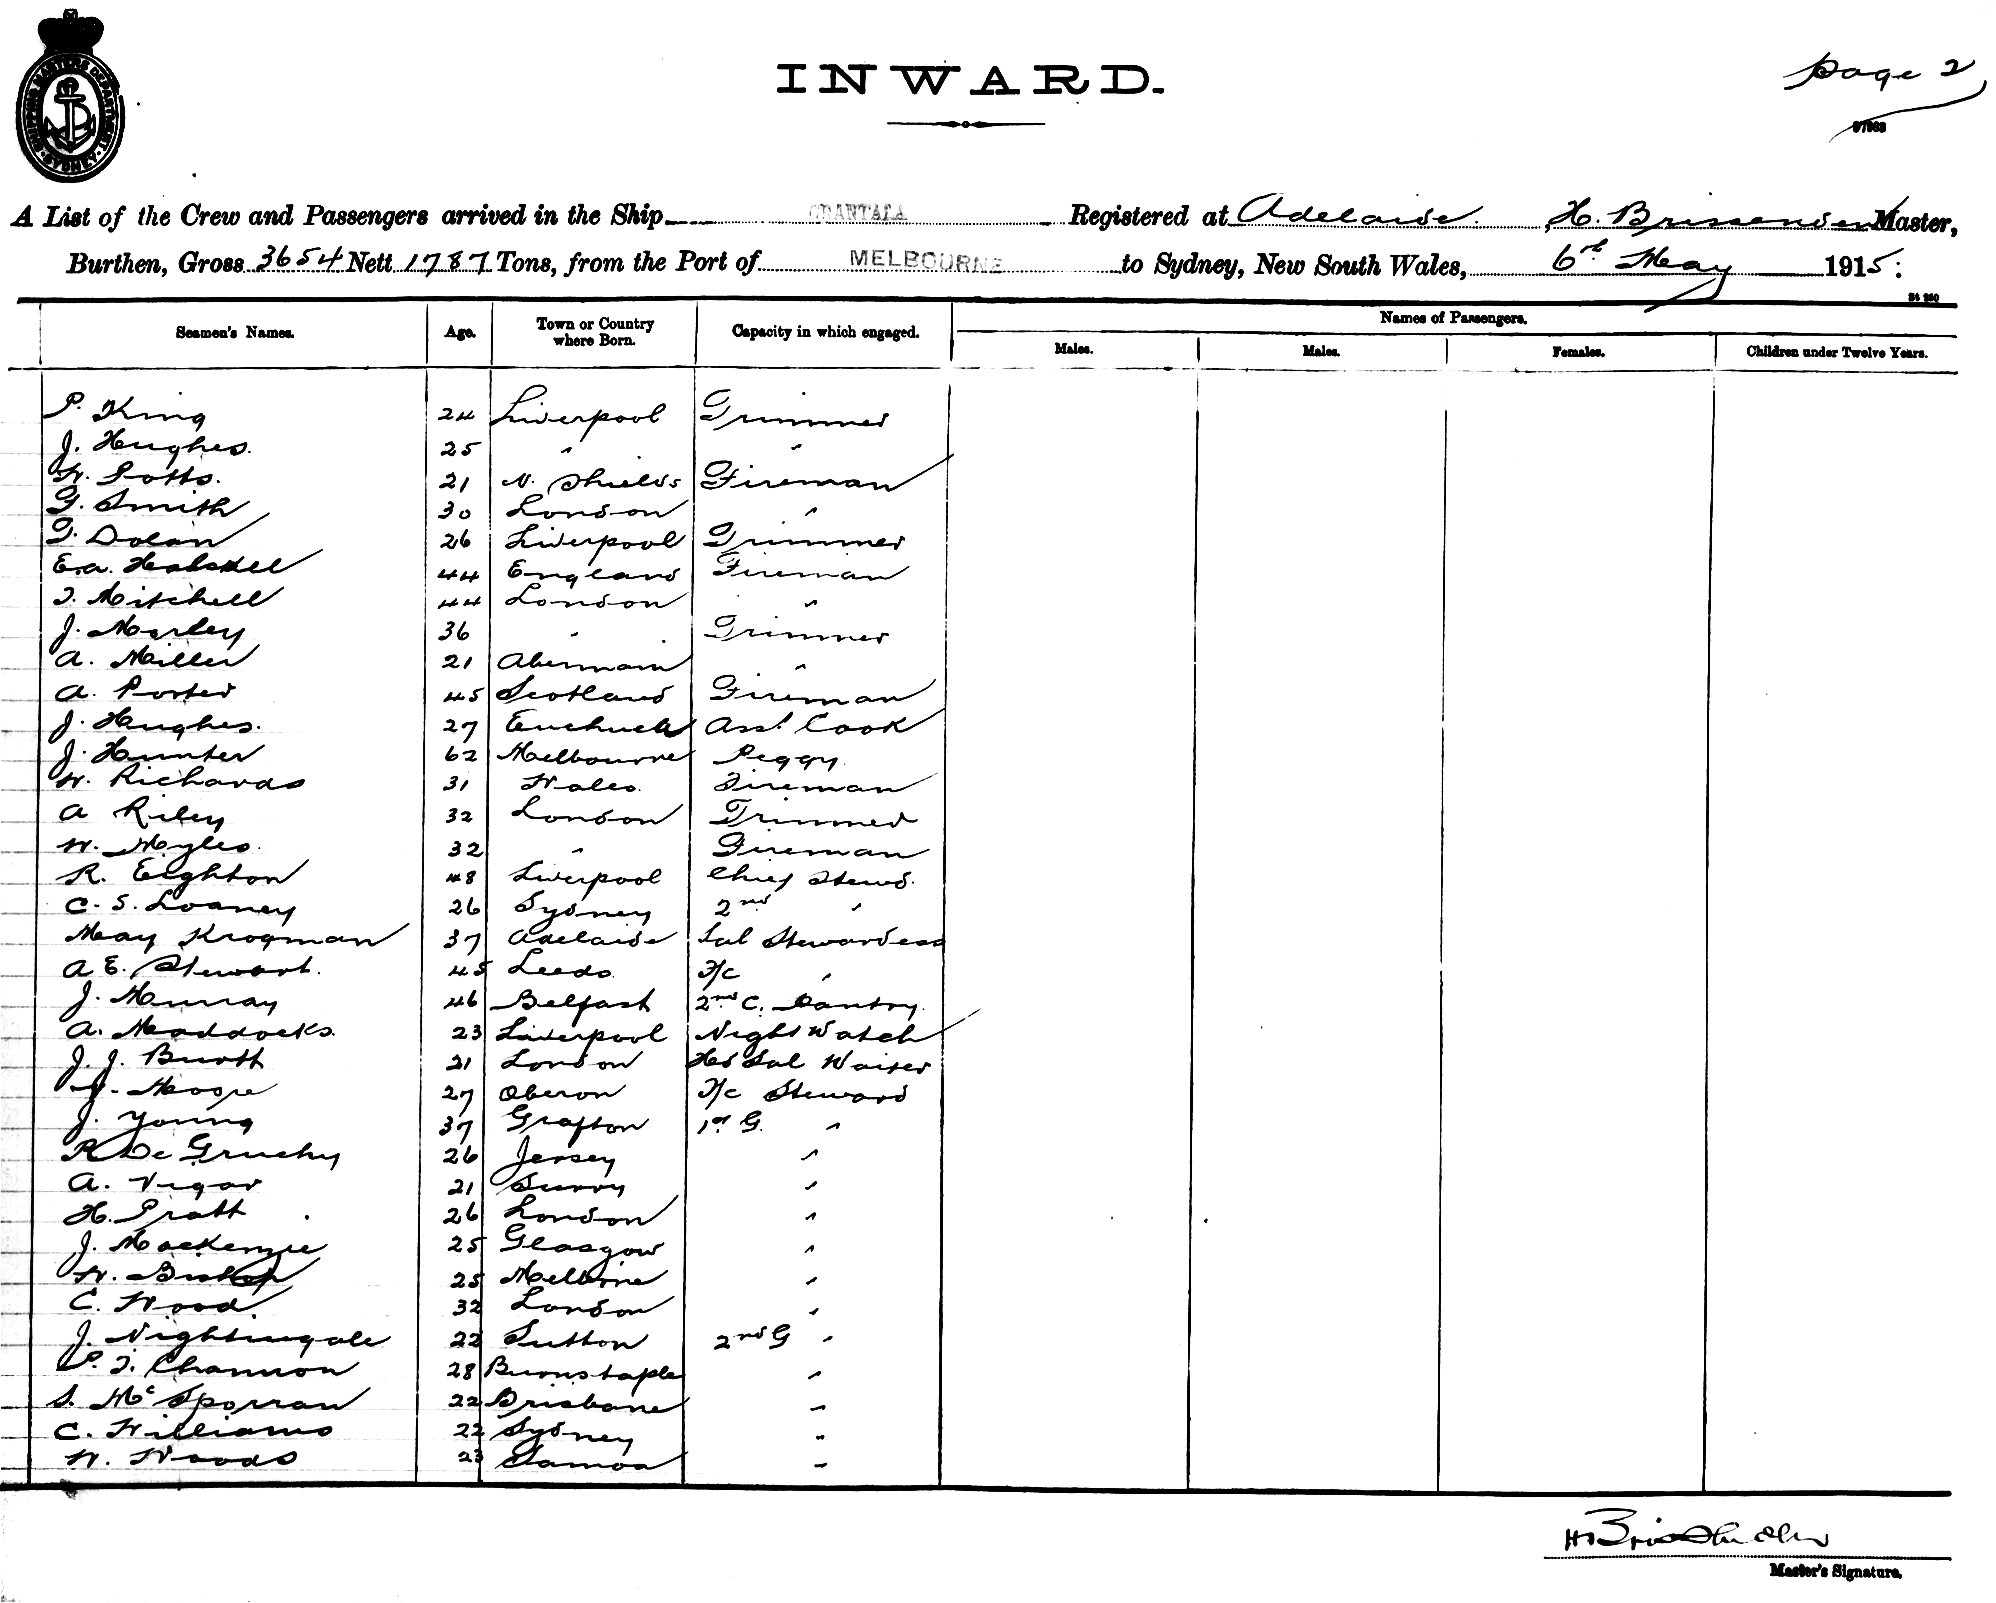 SHIPPING MASTERS DEPARTMENT
SYDNEY
INWARD.
page 2
A List of the Crew and Passengers arrived in the Ship GRANTALA Registered at Adelaide, H. Brissenden Master,
Burthen, Gross 3654 Nett 1787 Tons, from the Port of MELBOURNE to Sydney, New South Wales, 6th May 1915:
Names of Passengers.
Seamen's Names. Age. Town or Country where Born. Capacity in which engaged. Males. Males. Females. Children under Twelve Years.
P. King 24 Liverpool Trimmer
J. Hughes. 25 " "
W. Potts. 21 N. Shields Fireman
G. Smith 30 London "
T. Dolan 26 Liverpool Trimmer
E.A. 44 England Fireman
T. Mitchell 44 London "
J. Morley 36 " Trimmer
A. Miller 21 "
A. Porter 45 Scotland Fireman
J. Hughes. 27 Asst Cook
J. Hunter 62 Melbourne Peggy
W. Richards 31 Wales. Fireman
A Riley 32 London Trimmer
W. Myles. 32 " Fireman
R. Eighton 48 Liverpool Chief Stewd.
C. S. Loaney 26 Sydney 2nd "
May Krogman 37 Adelaide Sal Stewardess
A E. Stewart. 45 Leeds. F/c "
J. Murray 46 Belfast 2nd C. Pantry.
A. Maddocks. 23 Liverpool Night Watch
J. J. Burtt 21 London Hd Sal Waiter
J. Moore 27 Oberon F/c Steward
J. Young 37 Grafton 1st G. "
P De Gruchy 26 Jersey "
A. Vigar 21 Surry "
H. Pratt 26 London "
J. Mackenzie 25 Glasgow "
W. Bishop 25 Melbrne "
C. Wood 32 London "
J. Nightingale 22 Sutton 2nd G "
P. T. Channon 28 Burnstaple "
S. McSporran 22 Brisbane "
C. Williams 22 Sydney "
W. Woods 23 Samoa "
H Brissenden
Master's Signature.